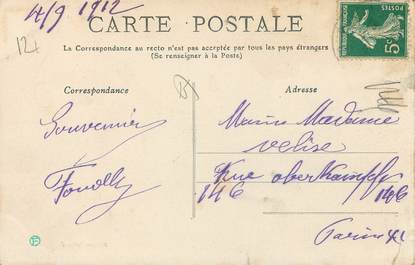 4/9 1912
CARTE POSTALE
La Correspondance au recto n'est pas acceptée par tous les pays étrangers
(Se renseigner à la Poste)
Correspondance
Adresse
Souvenir
Madame
velise
Rue oberkampf
146
146
Paris XI
RÉPUBLIQUE FRANÇAISE
5c
POSTES